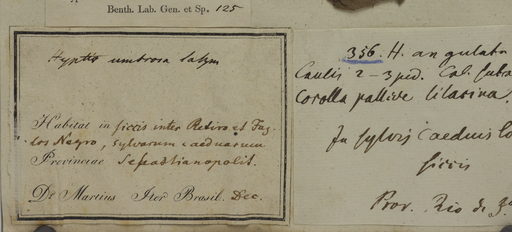 Benth. Lab. Gen. et Sp. 125
Hyptis umbrosa Salzm
Habitat in siccis inter Retiro et Fag-
los Negro, sylvarum caeduarum
Provinciae Sebastianopolit.
De Martius Iter Brasil. Dec.
356. H. angulata
Caulis 2-3 ped. Cal.
Corolla pallide lilacina.
In sylvis caeduis
siccis
Prov. Rio de